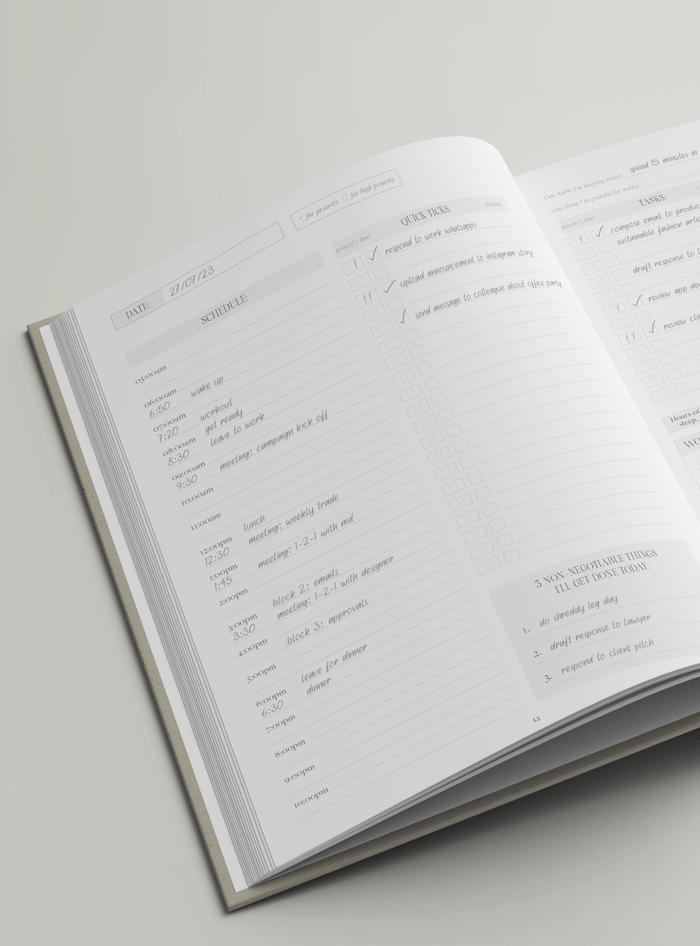 DATE: 27/07/23
! for priority !! for high priority
SCHEDULE
05:00am
06:00am
6:50 wake up
07:00am workout
7:20 get ready
08:00am
8:30 leave to work
09:00am
9:30 meeting: campaign kick off
10:00am
11:00am
12:00pm lunch
12:30 meeting: weekly trade
1:00pm
1:45 meeting: 1-2-1 with md
2:00pm
3:00pm block 2: emails
3:30 meeting: 1-2-1 with designer
4:00pm block 3: approvals
5:00pm
6:00pm leave for dinner
6:30 dinner
7:00pm
8:00pm
9:00pm
10:00pm
QUICK TICKS:
! ✓ respond to work whatsapps
!! ✓ upload announcement to instagram story
✓ send message to colleague about office party
3 NON-NEGOTIABLE THINGS
I'LL GET DONE TODAY:
1. do shreddy leg day
2. draft response to lawyer
3. respond to client pitch
12
One habit I'm keeping today: spend 15 minutes in
One thing I'm grateful for today:
TASKS:
! ✓ compose email to produc
sustainable fashion artic
draft response to l
! ✓ review app de
!! ✓ review clie
Hours of
sleep: